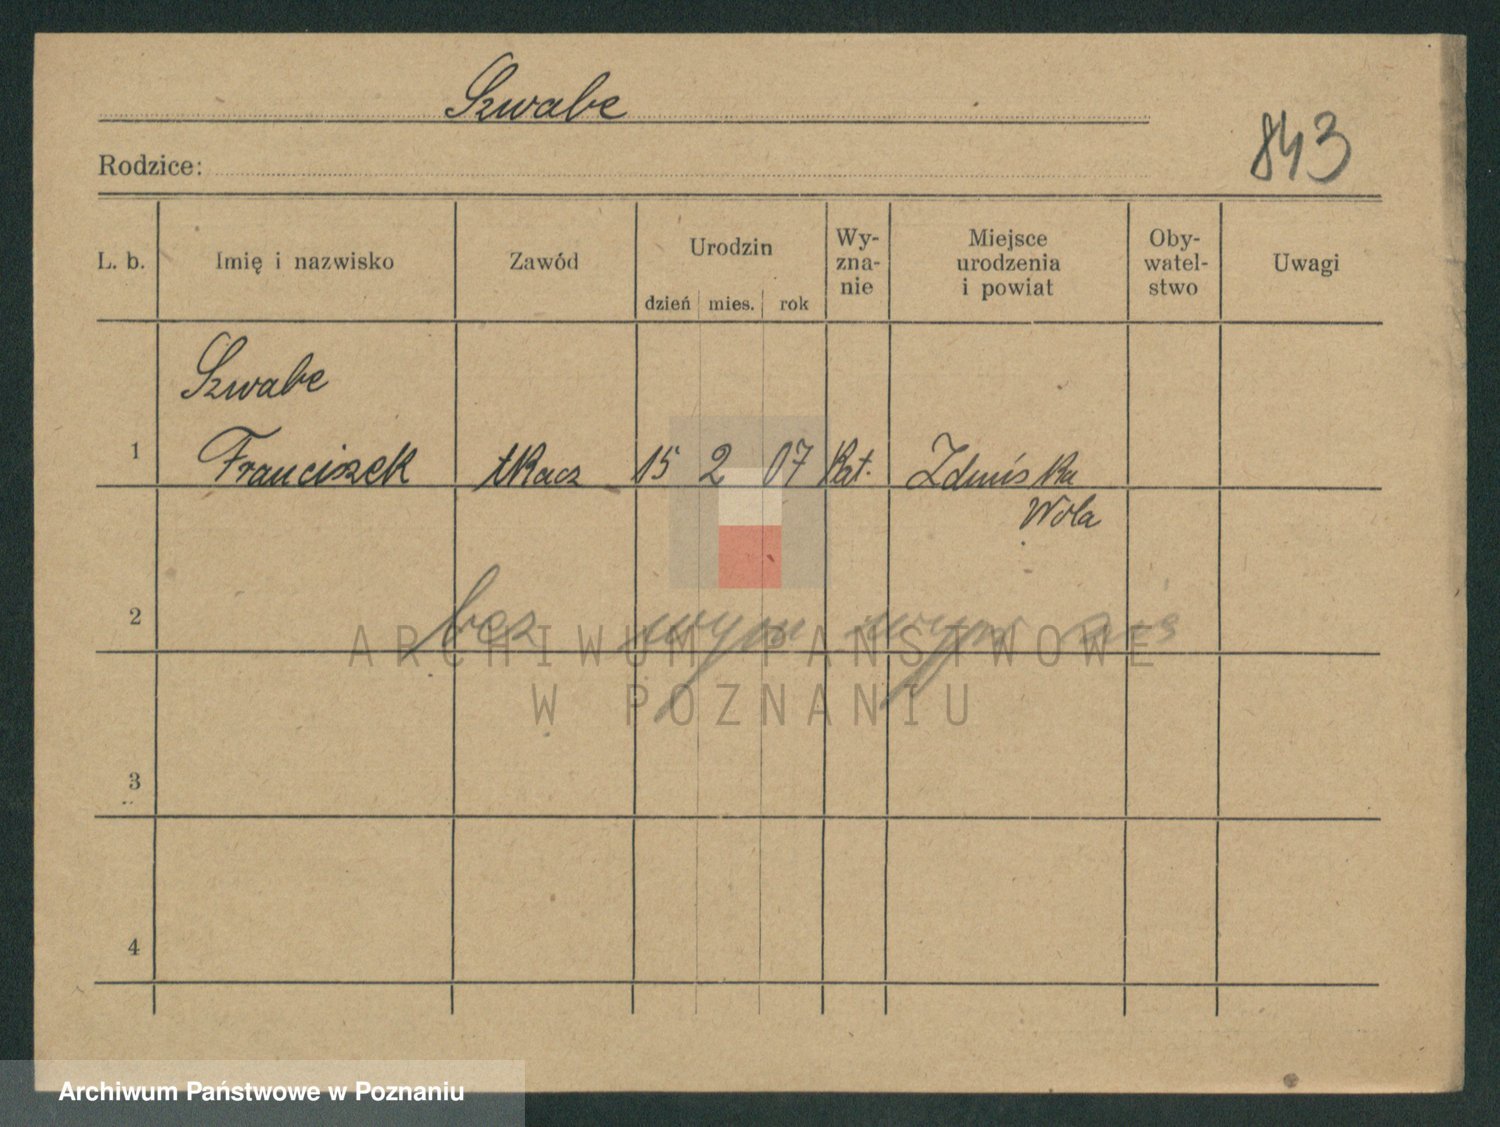 Szwabe
843
Rodzice:
L. b. Imię i nazwisko Zawód Urodzin dzień mies. rok Wy-zna-nie Miejsce urodzenia i powiat Oby-watel-stwo Uwagi
Szwabe
1 Franciszek tkacz 15 2 07 kat. Zduńska
Wola
2 bez
ARCHIWUM PAŃSTWOWE
W POZNANIU
3
4
Archiwum Państwowe w Poznaniu